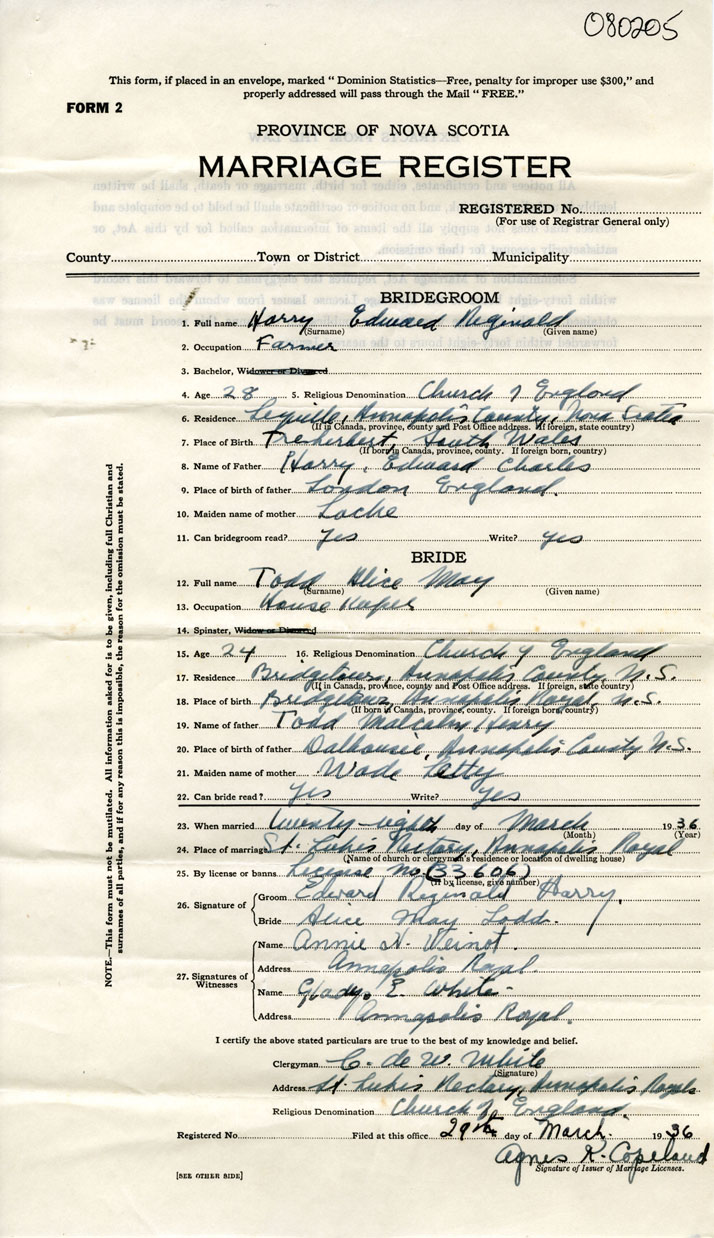 080205
This form, if placed in an envelope, marked “ Dominion Statistics—Free, penalty for improper use $300,” and
properly addressed will pass through the Mail “ FREE.”
FORM 2
PROVINCE OF NOVA SCOTIA
MARRIAGE REGISTER
REGISTERED No.
(For use of Registrar General only)
County Town or District Municipality
BRIDEGROOM
1. Full name Harry Edward Reginald
(Surname) (Given name)
2. Occupation Farmer
3. Bachelor, Widower or Divorced
4. Age 28 5. Religious Denomination Church of England
6. Residence Lequille, Annapolis County, Nova Scotia
(If in Canada, province, county and Post Office address. If foreign, state country)
7. Place of Birth Treherbert, South Wales
(If born in Canada, province, county. If foreign born, country)
8. Name of Father Harry, Edward Charles
9. Place of birth of father London England.
10. Maiden name of mother Locke
11. Can bridegroom read? yes Write? yes
BRIDE
12. Full name Todd Alice May
(Surname) (Given name)
13. Occupation House
14. Spinster, Widow or Divorced
15. Age 24 16. Religious Denomination Church of England
17. Residence Bridgetown, Annapolis County, N.S.
(If in Canada, province, county and Post Office address. If foreign, state country)
18. Place of birth Annapolis Royal, N.S.
(If born in Canada, province, county. If foreign born, country)
19. Name of father Todd Malcolm Henry
20. Place of birth of father Dalhousie, Annapolis County N.S.
21. Maiden name of mother Wade Letty
22. Can bride read? yes Write? yes
23. When married twenty-eighth day of March 1936
(Month) (Year)
24. Place of marriage St. Lukes Rectory, Annapolis Royal
(Name of church or clergyman's residence or location of dwelling house)
25. By license or banns License no. (33606)
(If by license, give number)
26. Signature of
Groom Edward Reginald Harry.
Bride Alice May Todd.
27. Signatures of
Witnesses
Name Annie H. Weinot.
Address Annapolis Royal.
Name Gladys E. White
Address Annapolis Royal.
I certify the above stated particulars are true to the best of my knowledge and belief.
Clergyman C. de W. White
(Signature)
Address St. Lukes Rectory, Annapolis Royal
Religious Denomination Church of England.
Registered No. Filed at this office 29th day of March. 1936
Agnes R. Copeland
Signature of Issuer of Marriage Licenses.
[SEE OTHER SIDE]
NOTE.—This form must not be mutilated. All information asked for is to be given, including full Christian and
surnames of all parties, and if for any reason this is impossible, the reason for the omission must be stated.